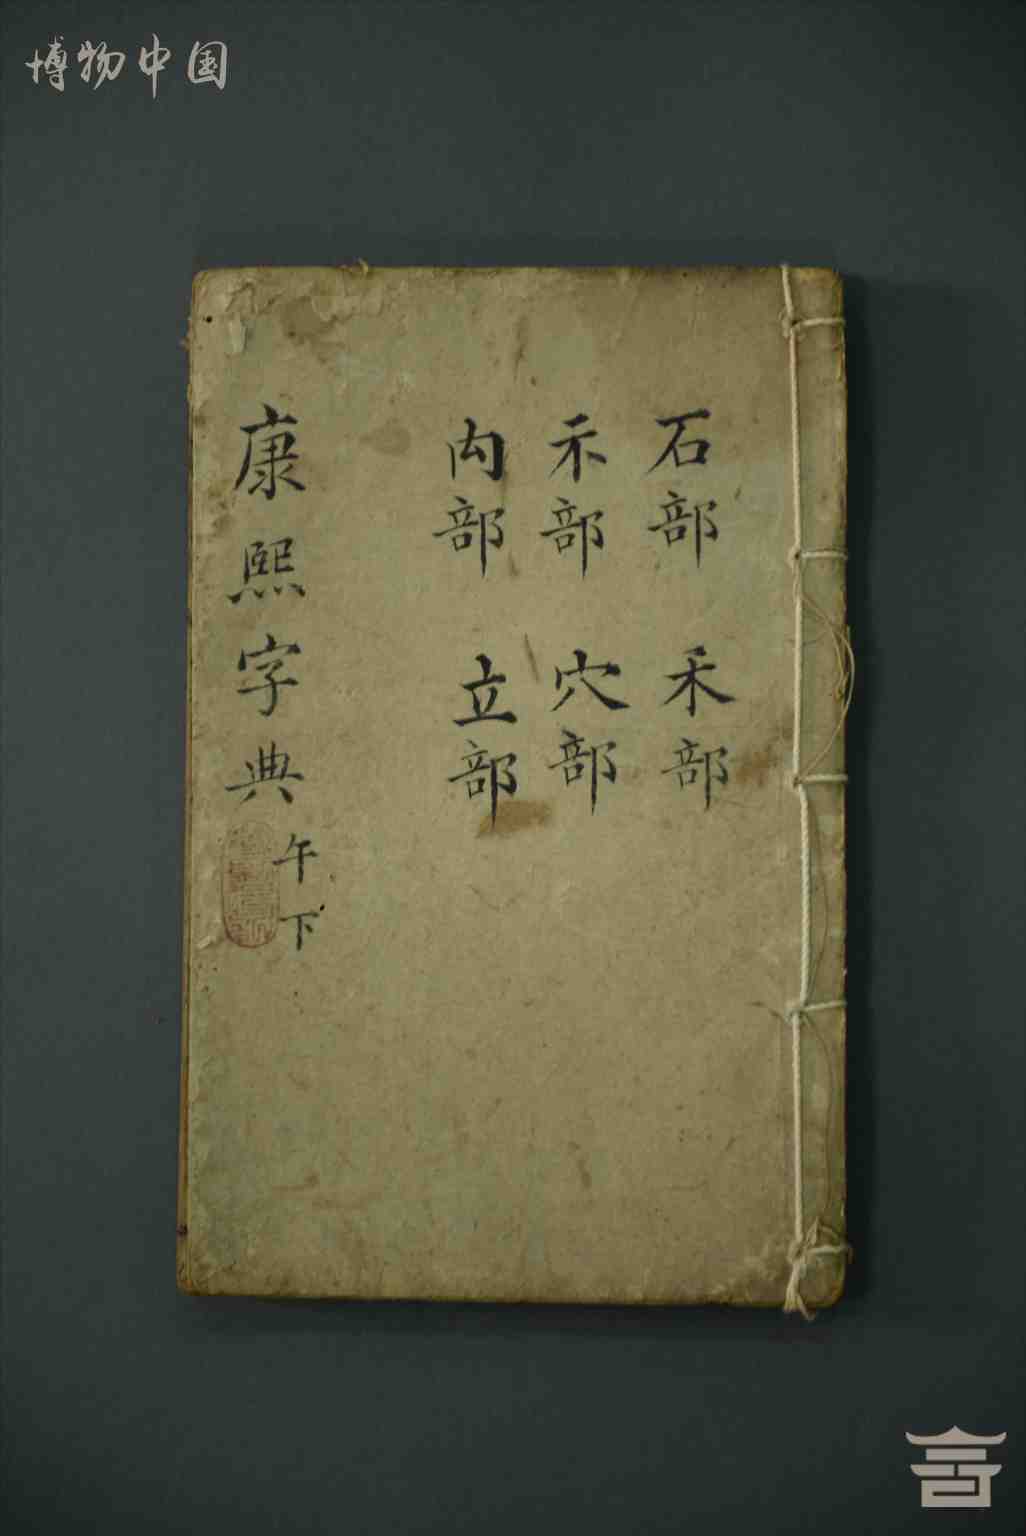 博物中国
石部 禾部
示部 穴部
禸部 立部
康熙字典 午下